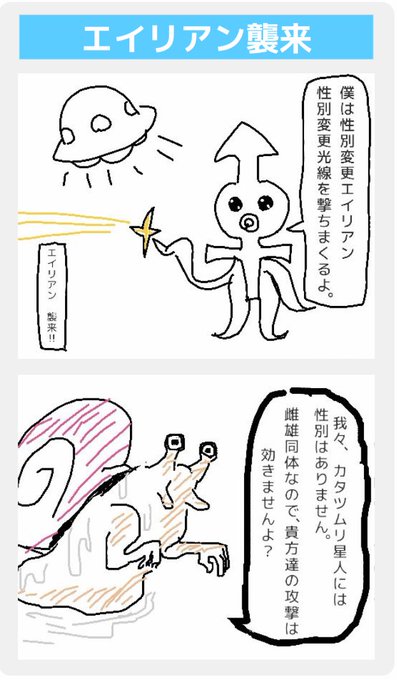 エイリアン襲来
僕は性別変更エイリアン
性別変更光線を撃ちまくるよ。
エイリアン 襲来!!
我々、カタツムリ星人には
性別はありません。
雌雄同体なので、貴方達の攻撃は
効きませんよ?